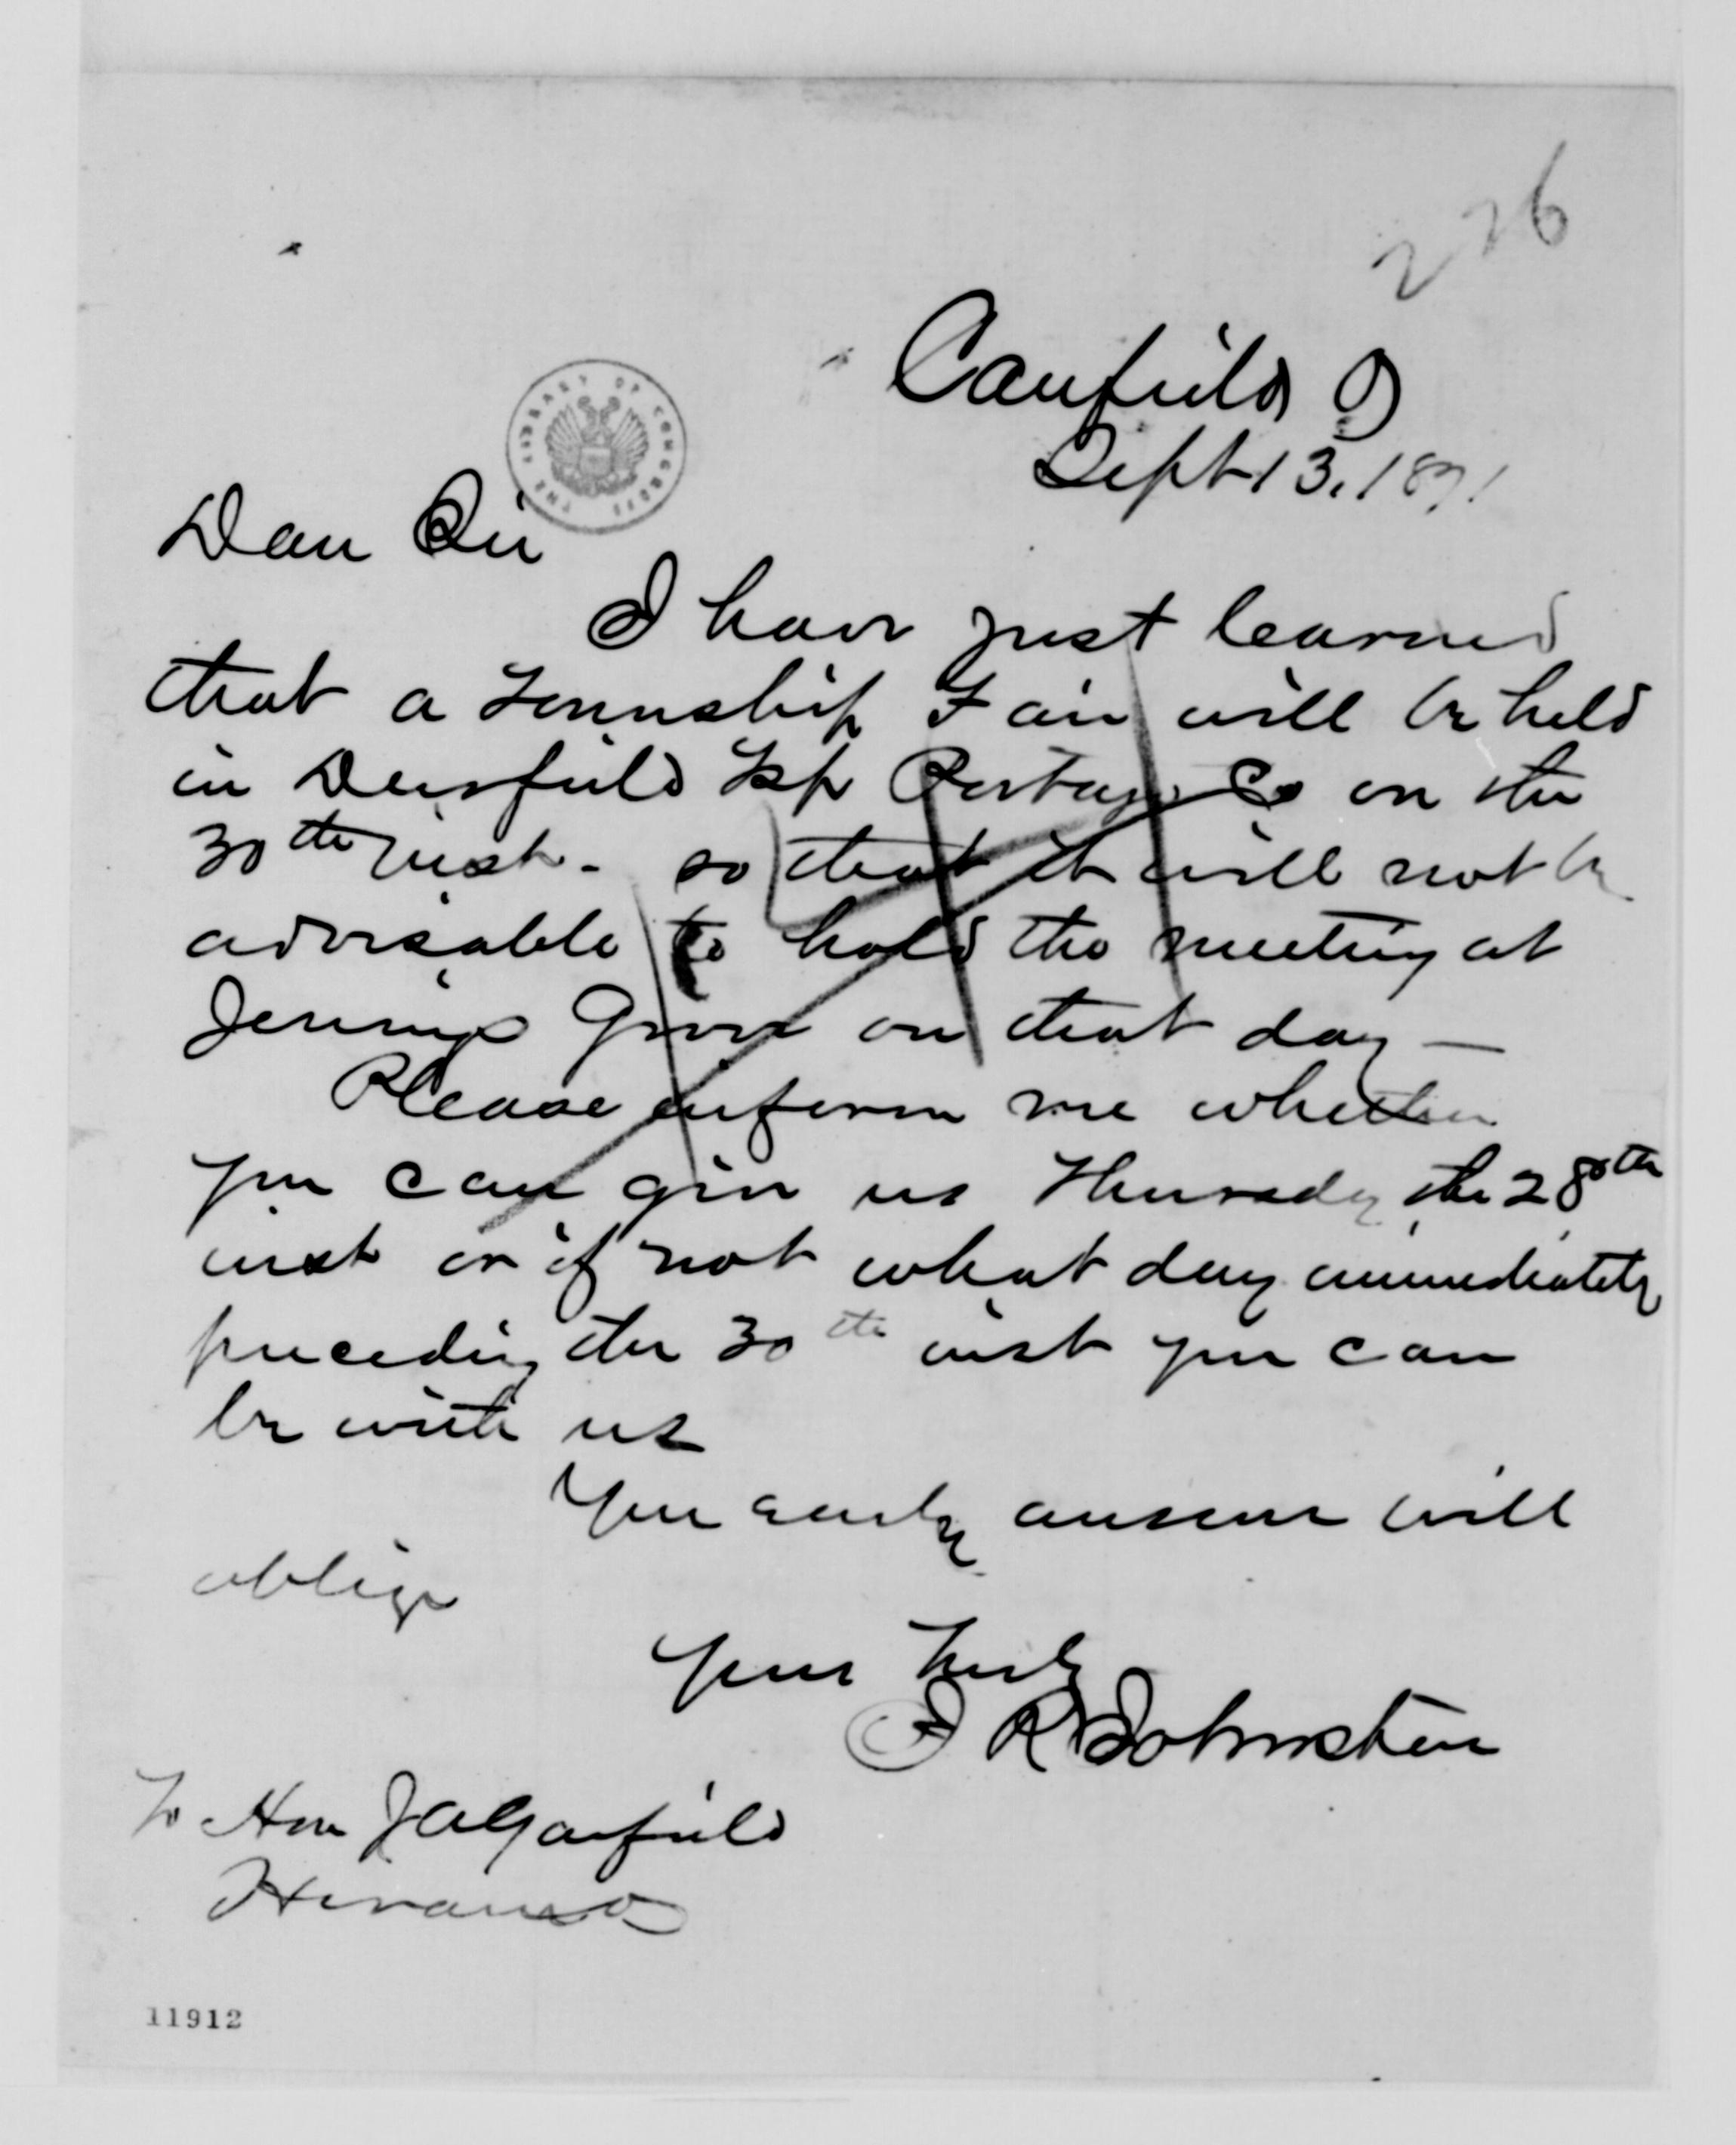 226
Canfield O
Sept 13, 1871
THE LIBRARY OF CONGRESS
Dear Sir
I have just learned
that a Township Fair will be held
in Deerfield Tsp Portage Co on the
30th inst - so that it will not be
advisable to hold the meeting at
Jennings Grove on that day —
Please inform me whether
you can give us Thursday the 28th
inst or if not what day immediately
preceding the 30th inst you can
be with us
Your early answer will
oblige
Yours truly
R Johnston
To Hon J A Garfield
Hiram O
11912